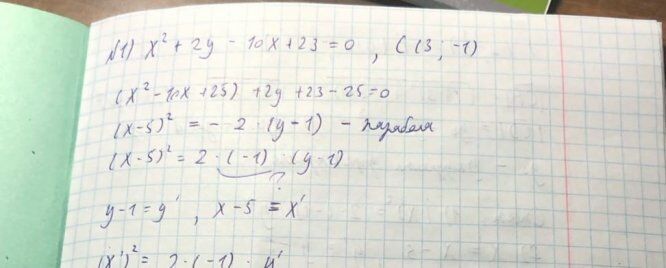 №1) x² + 2y - 10x + 23 = 0 , C(3; -1)
(x² - 10x + 25) + 2y + 23 - 25 = 0
(x-5)² = - 2 · (y-1) - парабола
(x-5)² = 2 · (-1) · (y-1)
?
y-1 = y' , x-5 = x'
(x')² = 2 · (-1) · y'